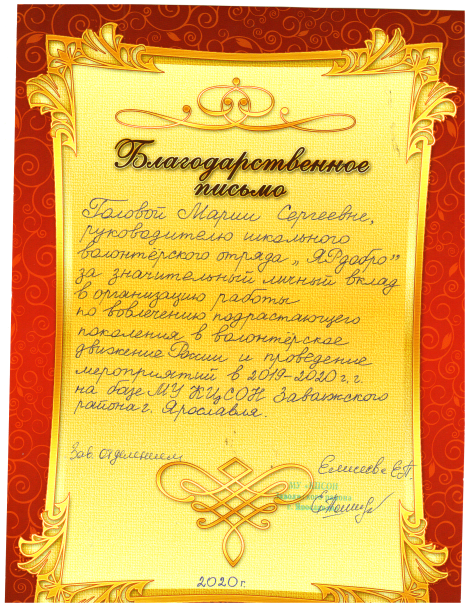 Благодарственное
письмо
Головой Марии Сергеевне,
руководителю школьного
волонтёрского отряда „ЯРдобро”
за значительный личный вклад
в организацию работы
по вовлечению подрастающего
поколения в волонтёрское
движение России и проведение
мероприятий в 2019-2020 г.г.
на базе МУ КЦСОН Заволжского
района г. Ярославля.
Зав. отделением
Елисеева Е.П.
МУ
района
2020г.